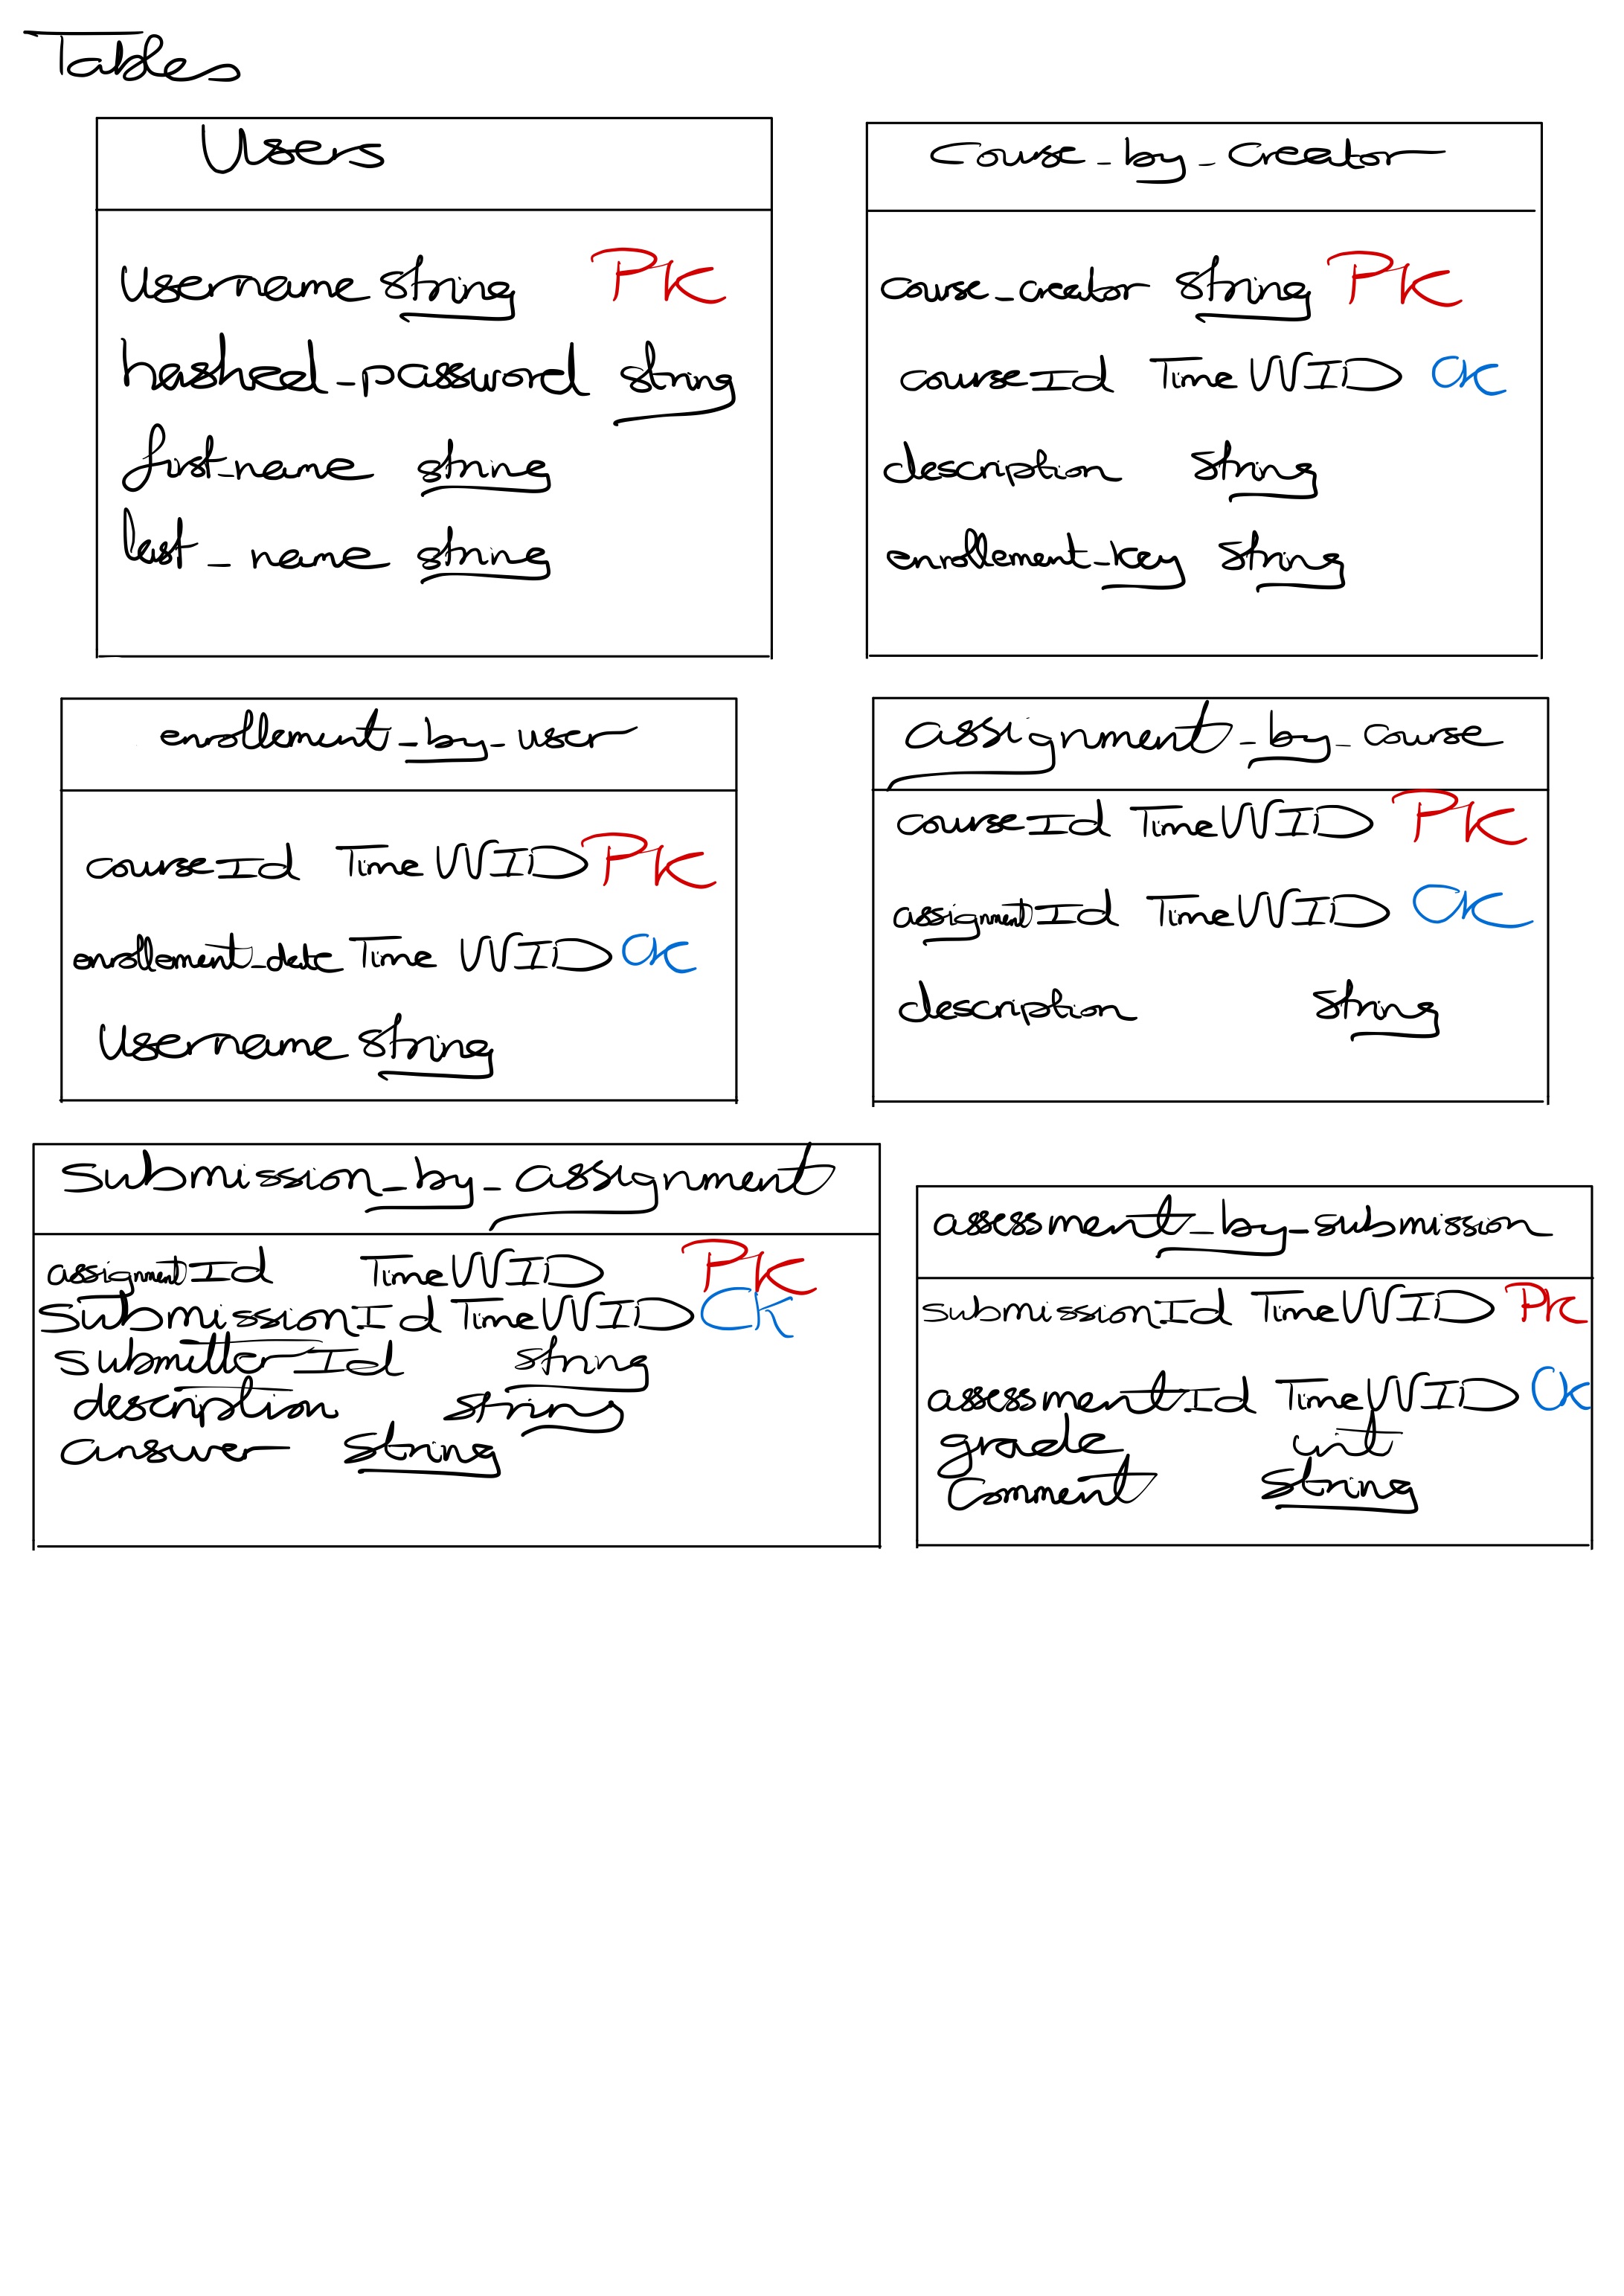 Tables
Users
username string PK
hashed_password string
first_name string
last_name string
course_by_creator
course_creator string PK
courseId TimeUUID CK
description string
enrollement_key string
enrollement_by_user
courseId TimeUUID PK
enrollement_date TimeUUID CK
username string
assignment_by_course
courseId TimeUUID PK
assignmentId TimeUUID CK
description string
submission_by_assignment
assignmentId TimeUUID PK
submissionId TimeUUID CK
submitterId string
description string
answer string
assessment_by_submission
submissionId TimeUUID PK
assessmentId TimeUUID CK
grade int
comment string